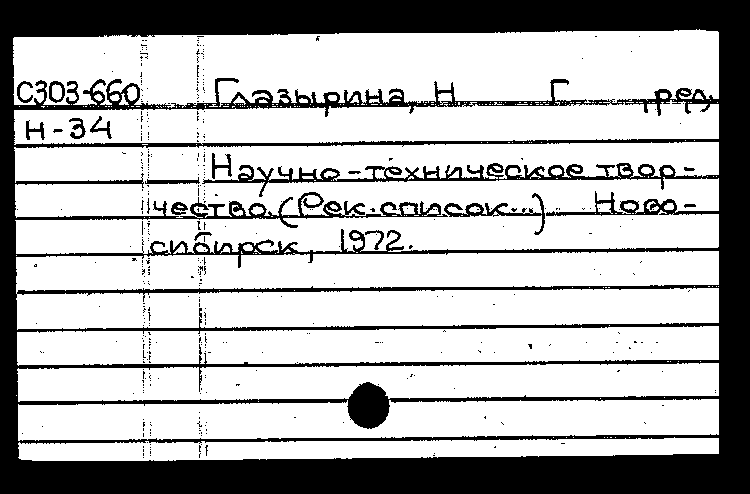 С303-660 Глазырина, Н Г , ред.
Н-34
Научно-техническое твор-
чество. (Рек. список...) Ново-
сибирск, 1972.